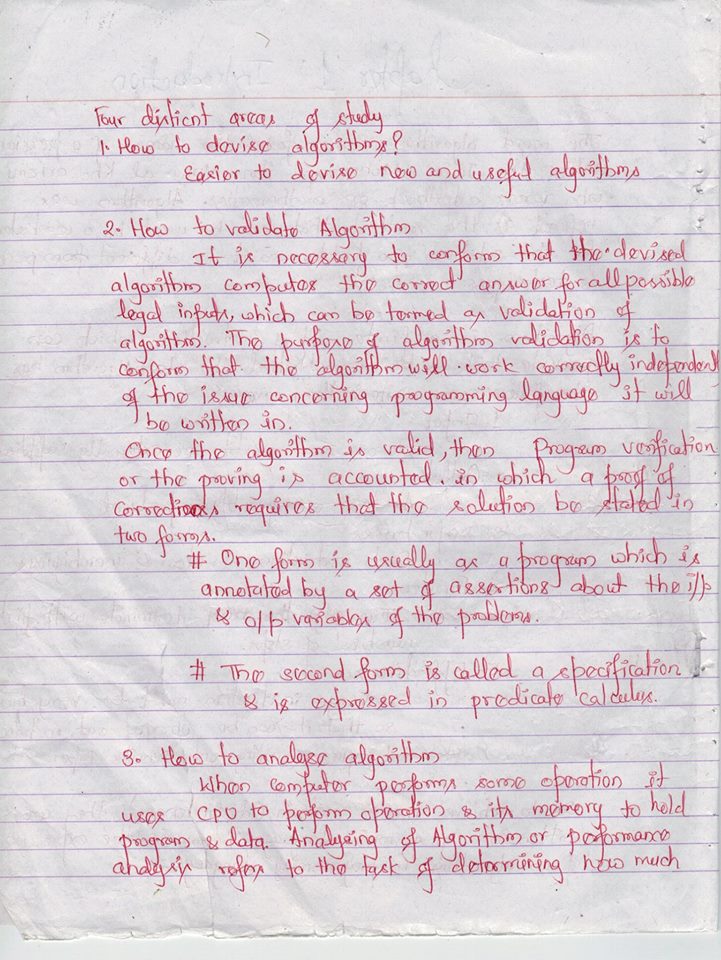 Four distient areas of study
1. How to devise algorithms?
Easier to devise new and useful algorithms
2. How to validate Algorithm
It is necessary to conform that the devised
algorithm computes the correct answer for all possible
legal inputs, which can be termed as validation of
algorithm. The purpose of algorithm validation is to
conform that the algorithm will work correctly independent
of the issue concerning programming language it will
be written in.
Once the algorithm is valid, then Program verification
or the proving is accounted. in which a proof of
correctioness requires that the solution be stated in
two forms.
# One form is usually as a program which is
annotated by a set of assertions about the i/p
& o/p variables of the problems.
# The second form is called a specification
& is expressed in predicate calculus.
3. How to analyse algorithm
When computer performs some operation it
uses CPU to perform operation & its memory to hold
program & data. Analysing of Algorithm or performance
analysis refers to the task of determining how much